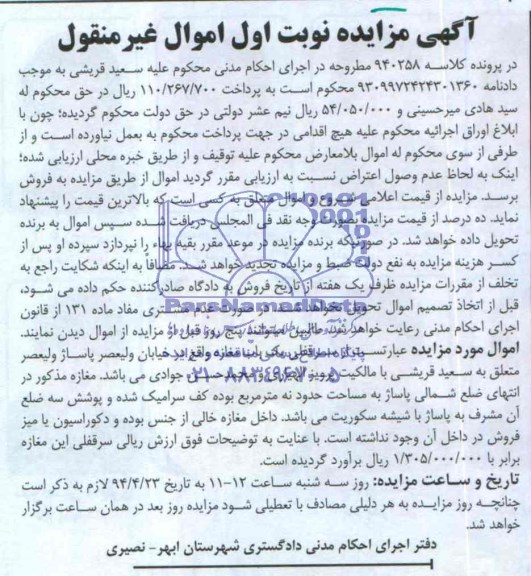 آگهی مزایده نوبت اول اموال غیرمنقول
در پرونده کلاسه ۹۴۰۲۵۸ مطروحه در اجرای احکام مدنی محکوم علیه سعید قریشی به موجب
دادنامه ۹۳۰۹۹۷۲۴۲۴۳۰۱۳۶۰ محکوم است به پرداخت ۱۱۰/۲۶۷/۷۰۰ ریال در حق محکوم له
سید هادی میرحسینی و ۵۴/۰۵۰/۰۰۰ ریال نیم عشر دولتی در حق دولت محکوم گردیده؛ چون با
ابلاغ اوراق اجرائیه محکوم علیه هیچ اقدامی در جهت پرداخت محکوم به بعمل نیاورده است و از
طرفی از سوی محکوم له اموال بلامعارض محکوم علیه توقیف و از طریق خبره محلی ارزیابی شده؛
اینک به لحاظ عدم وصول اعتراض نسبت به ارزیابی مقرر گردید اموال از طریق مزایده به فروش
برسد. مزایده از قیمت اعلامی شروع و اموال متعلق به کسی است که بالاترین قیمت را پیشنهاد
نماید. ده درصد از قیمت مزایده بصورت وجه نقد فی المجلس دریافت شده سپس اموال به برنده
تحویل داده خواهد شد. در صورتیکه برنده مزایده در موعد مقرر بقیه بهاء را نپردازد سپرده او پس از
کسر هزینه مزایده به نفع دولت ضبط و مزایده تجدید خواهد شد. مضافاً به اینکه شکایت راجع به
تخلف از مقررات مزایده ظرف یک هفته از تاریخ فروش به دادگاه صادرکننده حکم داده می شود،
قبل از اتخاذ تصمیم اموال تحویل نخواهد شد. در صورت عدم مشتری مفاد ماده ۱۳۱ از قانون
اجرای احکام مدنی رعایت خواهد شد. طالبین میتوانند پنج روز قبل از مزایده از اموال دیدن نمایند.
اموال مورد مزایده عبارتست از: سرقفلی یکباب مغازه واقع در خیابان ولیعصر پاساژ ولیعصر
متعلق به سعید قریشی با مالکیت جوادی می باشد. مغازه مذکور در
انتهای ضلع شمالی پاساژ به مساحت حدود نه مترمربع بوده کف سرامیک شده و پوشش سه ضلع
آن مشرف به پاساژ با شیشه سکوریت می باشد. داخل مغازه خالی از جنس بوده و دکوراسیون یا میز
فروش در داخل آن وجود نداشته است. با عنایت به توضیحات فوق ارزش ریالی سرقفلی این مغازه
برابر با ۱/۳۰۵/۰۰۰/۰۰۰ ریال برآورد گردیده است.
تاریخ و ساعت مزایده: روز سه شنبه ساعت ۱۲-۱۱ به تاریخ ۹۴/۴/۲۳ لازم به ذکر است
چنانچه روز مزایده به هر دلیلی مصادف با تعطیلی شود مزایده روز بعد در همان ساعت برگزار
خواهد شد.
دفتر اجرای احکام مدنی دادگستری شهرستان ابهر- نصیری
ParsNamadData
۰۲۱-۸۸۳۴۹۶۷۰-۵